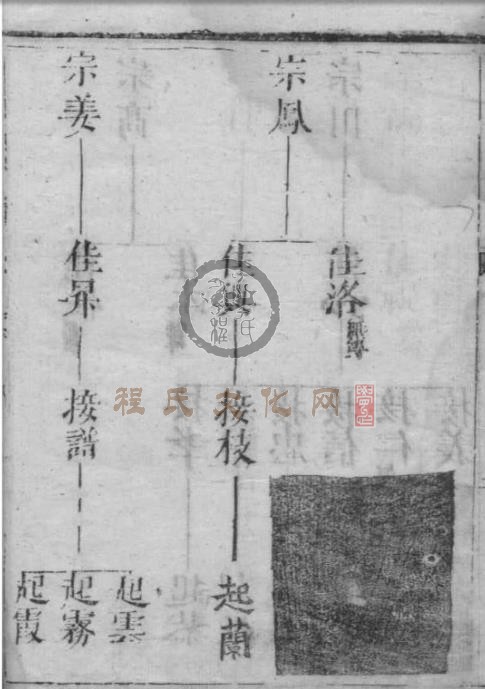 宗鳳
佳洛
佳
接枝
起蘭
宗姜
佳昇
接譜
起雲
起霧
起霞
程氏文化网